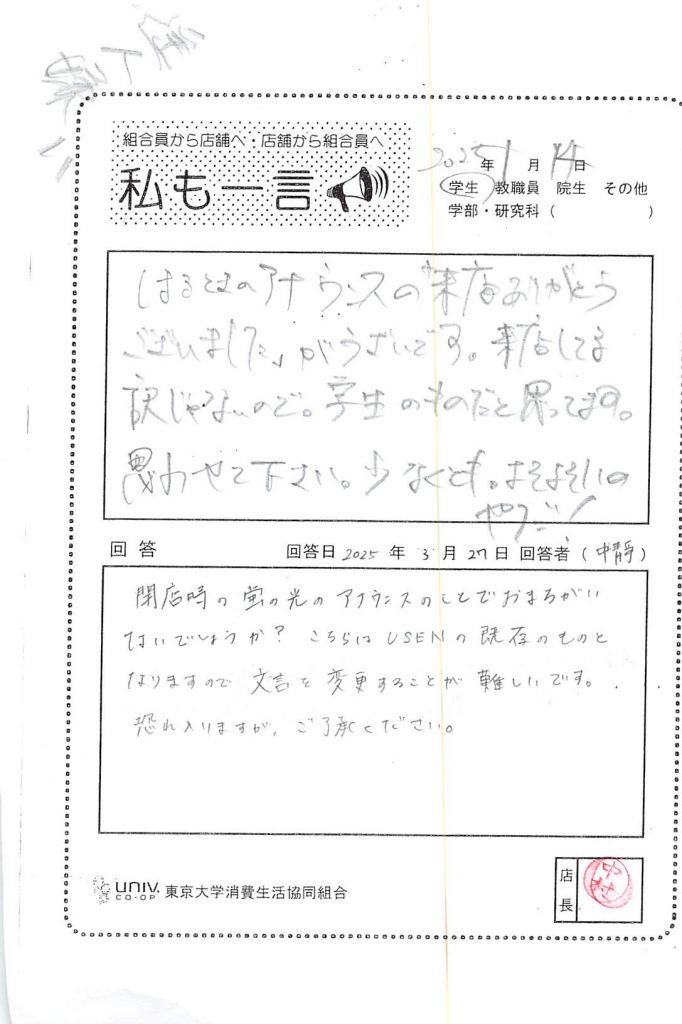 組合員から店舗へ・店舗から組合員へ
私も一言
2025年1月14日
学生 教職員 院生 その他
学部・研究科（ ）
アナウンスの「来店ありがとう
ございました」がうざいです。来店してる
訳じゃないので。学生のものだと思ってます。
思わせて下さい。少なくとも。よそよそしいの
やだ!
回答 回答日 2025 年 3 月 27 日 回答者（中靜）
閉店時の蛍の光のアナウンスのことでおまちがい
ないでしょうか? こちらはUSENの既存のものと
なりますので文言を変更することが難しいです。
恐れ入りますが、ご了承ください。
UNIV. CO-OP 東京大学消費生活協同組合
店長 中村